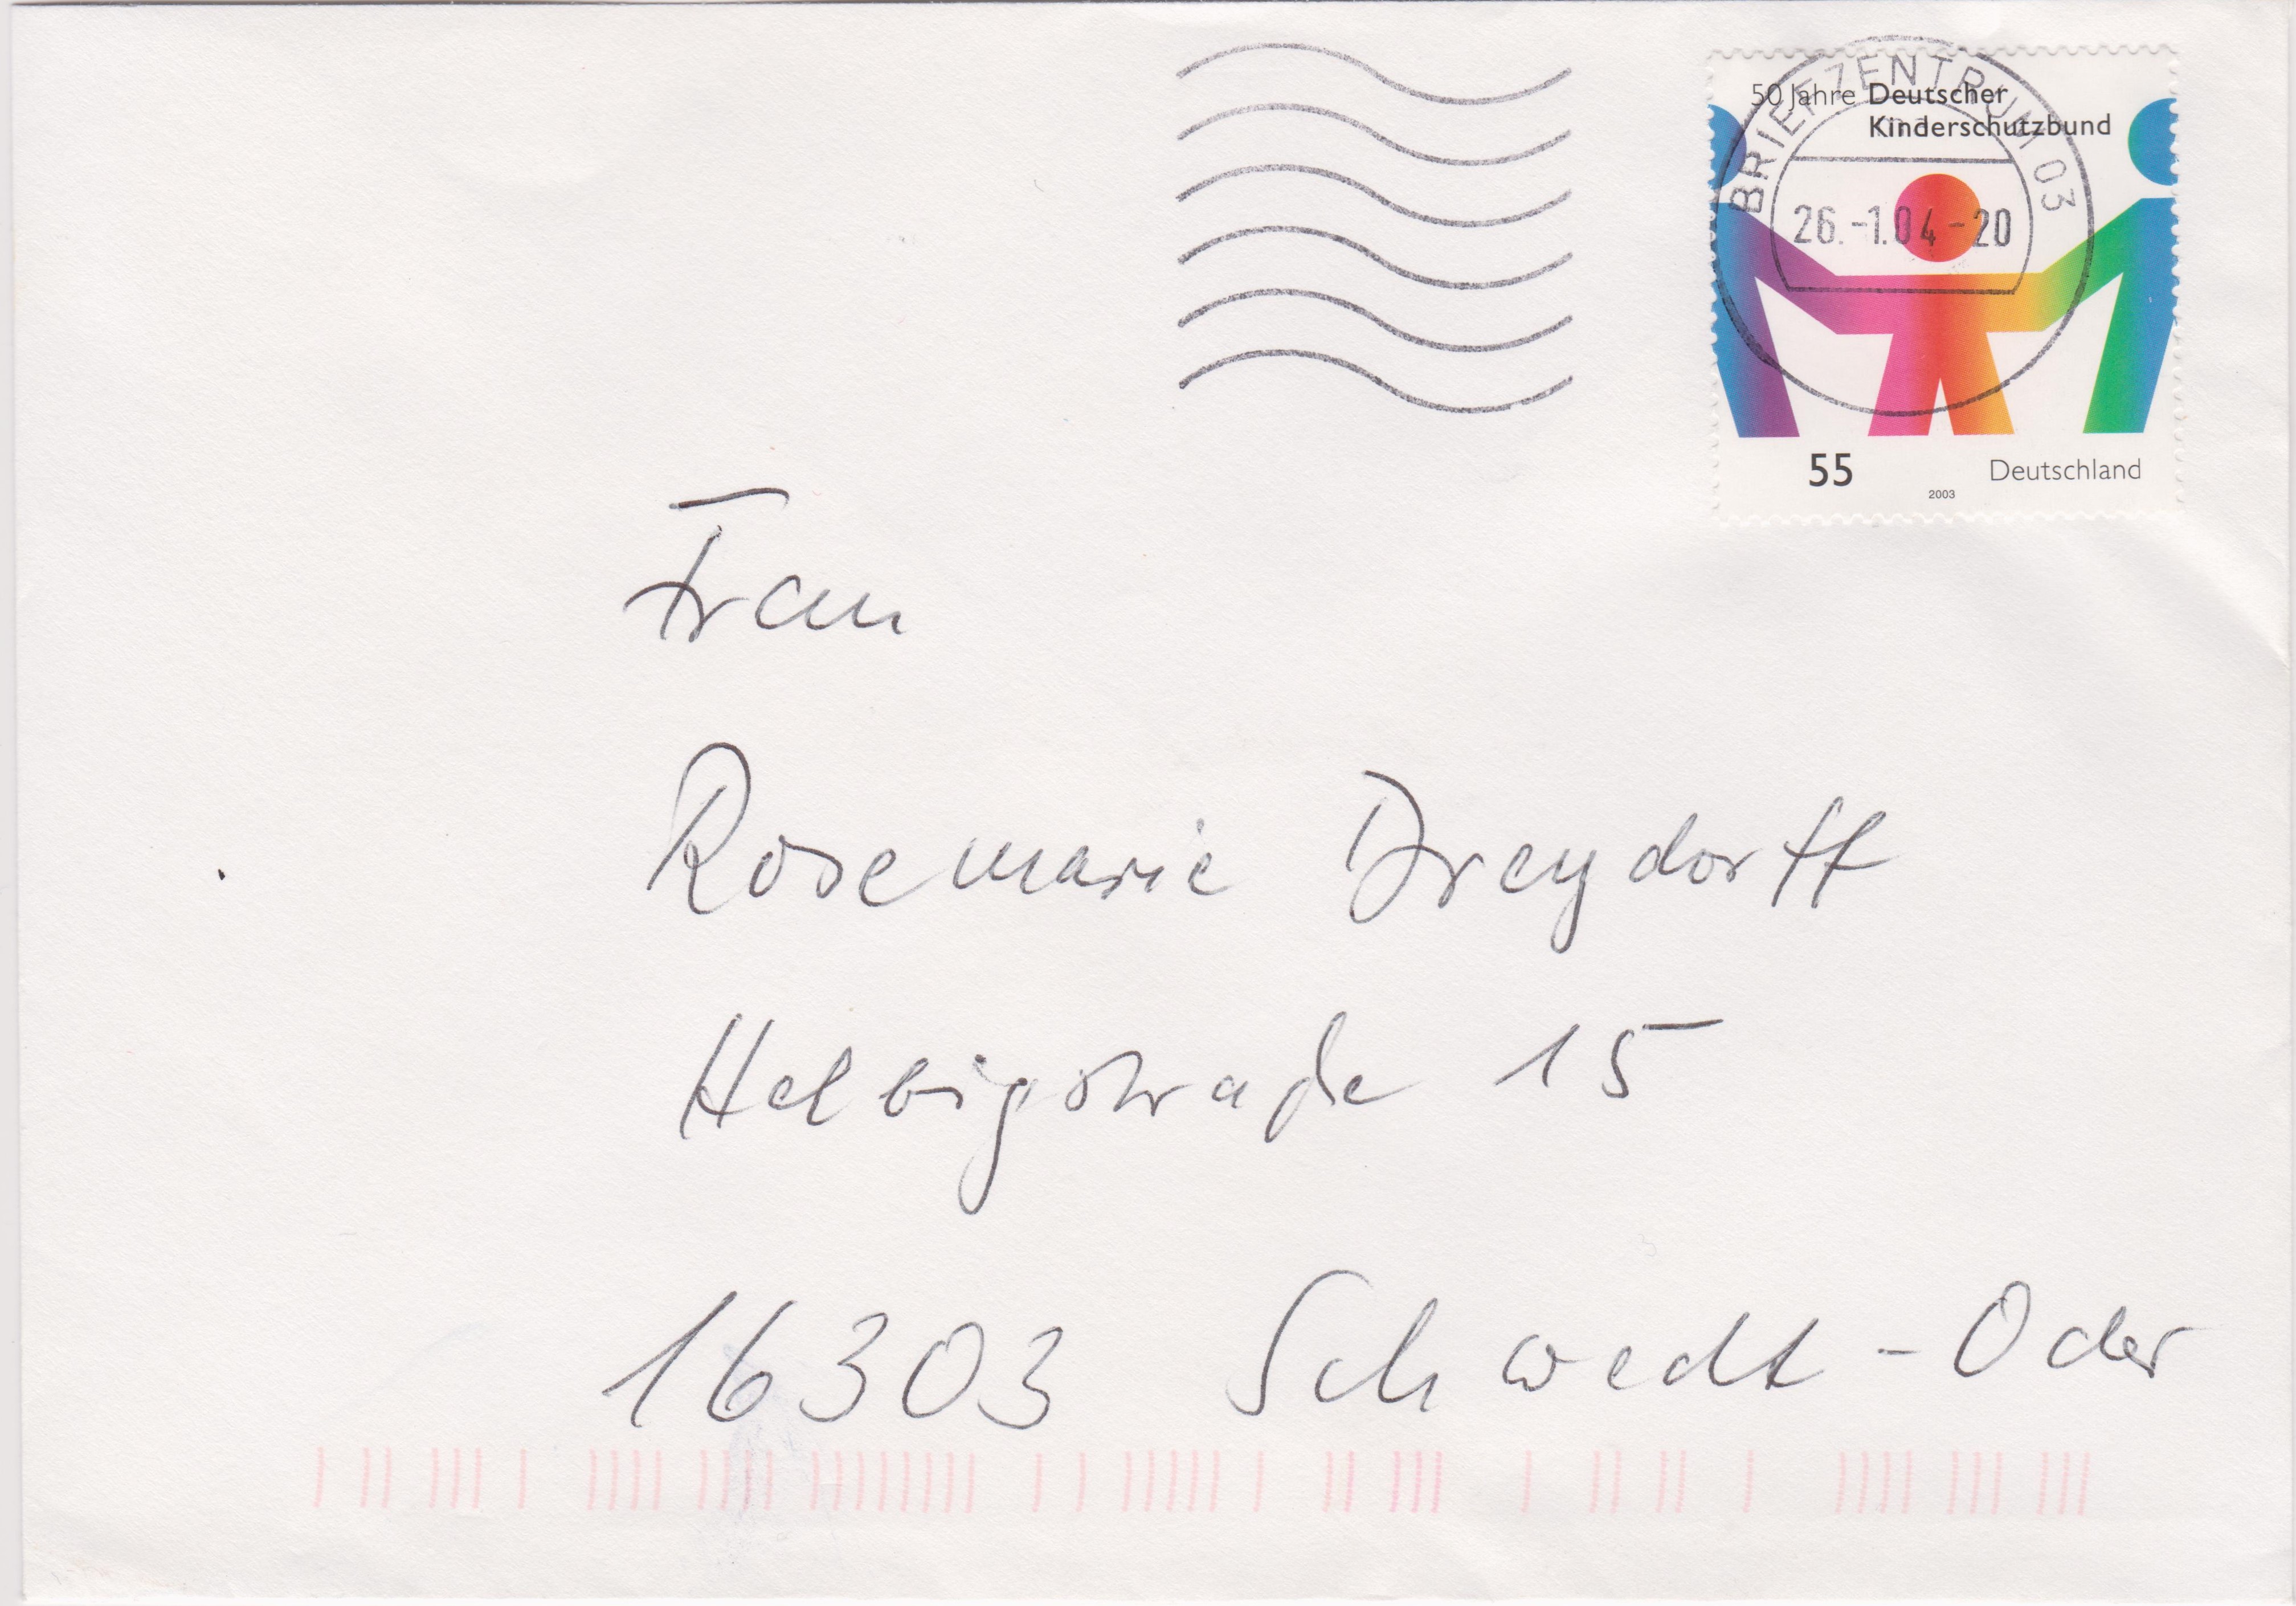 50 Jahre Deutscher
Kinderschutzbund
BRIEFZENTRUM 03
26.-1.04-20
55
2003
Deutschland
Frau
Rosemarie Dreydorff
Helbigstraße 15
16303 Schwedt-Oder